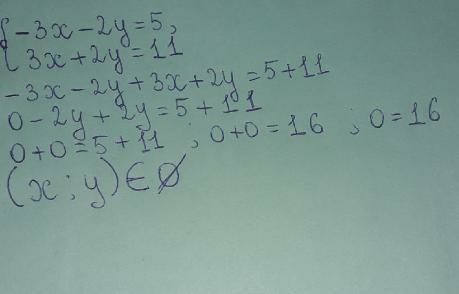 { -3x - 2y = 5,
3x + 2y = 11
-3x - 2y + 3x + 2y = 5 + 11
0 - 2y + 2y = 5 + 11
0 + 0 = 5 + 11 ; 0 + 0 = 16 ; 0 = 16
(x ; y) ∈ ∅